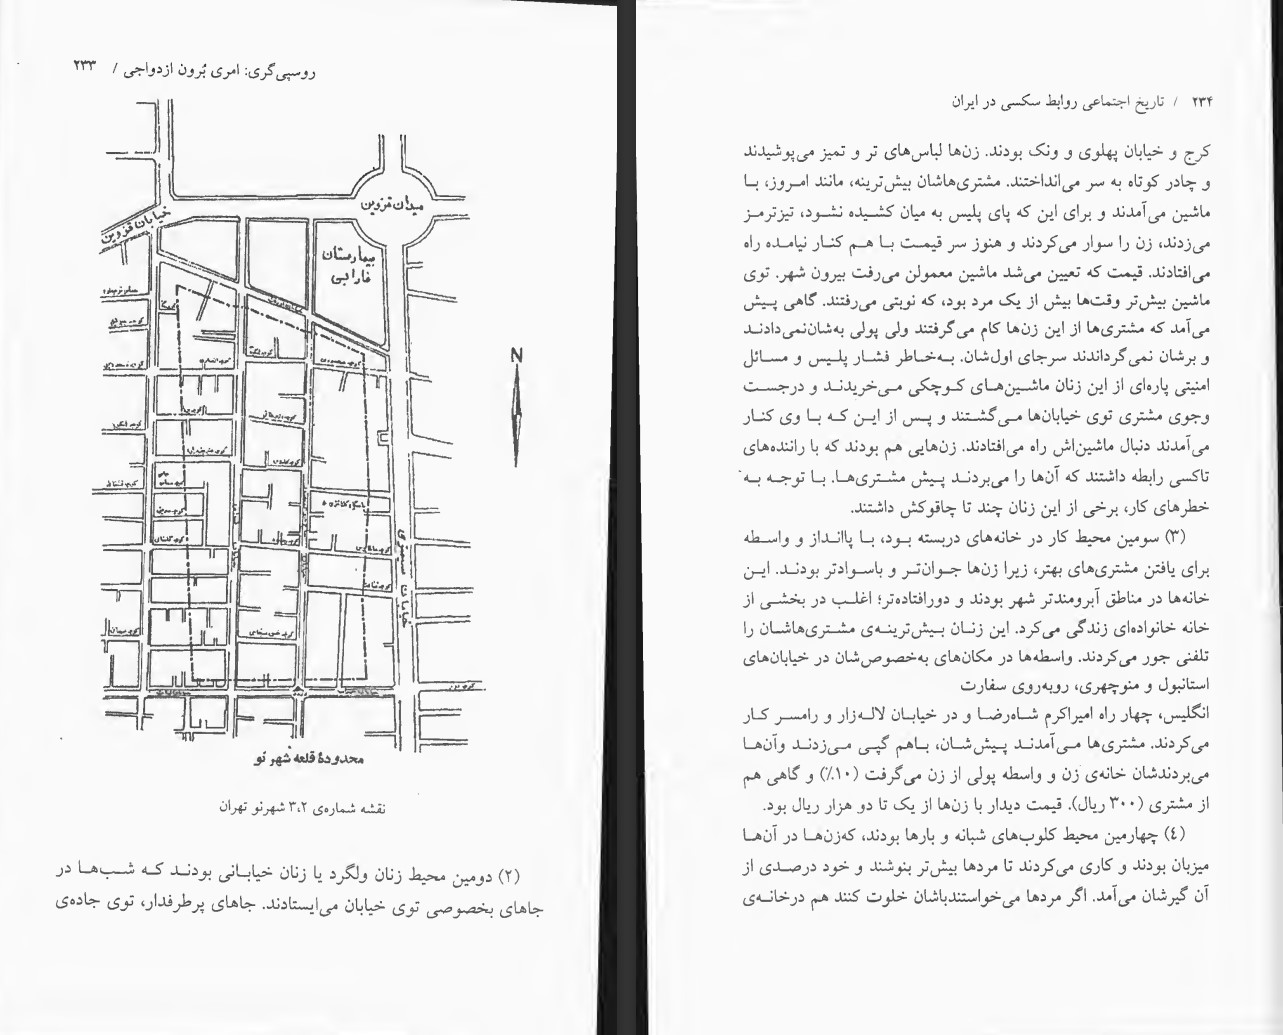 روسپی‌گری: امری بُرون ازدواجی / ۲۳۳
میدان قزوین
خیابان قزوین
بیمارستان
فارابی
N
محدودهٔ قلعه شهر نو
نقشه شماره‌ی ۳،۲ شهرنو تهران
(۲) دومین محیط زنان ولگرد یا زنان خیابانی بودند که شب‌ها در
جاهای بخصوصی توی خیابان می‌ایستادند. جاهای پرطرفدار، توی جاده‌ی
۲۳۴ / تاریخ اجتماعی روابط سکسی در ایران
کرج و خیابان پهلوی و ونک بودند. زن‌ها لباس‌های تر و تمیز می‌پوشیدند
و چادر کوتاه به سر می‌انداختند. مشتری‌هاشان بیش‌ترینه، مانند امروز، با
ماشین می‌آمدند و برای این که پای پلیس به میان کشیده نشود، تیزترمز
می‌زدند، زن را سوار می‌کردند و هنوز سر قیمت با هم کنار نیامده راه
می‌افتادند. قیمت که تعیین می‌شد ماشین معمولن می‌رفت بیرون شهر. توی
ماشین بیش‌تر وقت‌ها بیش از یک مرد بود، که نوبتی می‌رفتند. گاهی پیش
می‌آمد که مشتری‌ها از این زن‌ها کام می‌گرفتند ولی پولی به‌شان‌نمی‌دادند
و برشان نمی‌گرداندند سرجای اول‌شان. به‌خاطر فشار پلیس و مسائل
امنیتی پاره‌ای از این زنان ماشین‌های کوچکی می‌خریدند و درجست
وجوی مشتری توی خیابان‌ها می‌گشتند و پس از این که با وی کنار
می‌آمدند دنبال ماشین‌اش راه می‌افتادند. زن‌هایی هم بودند که با راننده‌های
تاکسی رابطه داشتند که آن‌ها را می‌بردند پیش مشتری‌ها. با توجه به
خطرهای کار، برخی از این زنان چند تا چاقوکش داشتند.
(۳) سومین محیط کار در خانه‌های دربسته بود، با پاانداز و واسطه
برای یافتن مشتری‌های بهتر، زیرا زن‌ها جوان‌تر و باسوادتر بودند. این
خانه‌ها در مناطق آبرومندتر شهر بودند و دورافتاده‌تر؛ اغلب در بخشی از
خانه خانواده‌ای زندگی می‌کرد. این زنان بیش‌ترینه‌ی مشتری‌هاشان را
تلفنی جور می‌کردند. واسطه‌ها در مکان‌های به‌خصوص‌شان در خیابان‌های
استانبول و منوچهری، روبه‌روی سفارت
انگلیس، چهار راه امیراکرم شاه‌رضا و در خیابان لاله‌زار و رامسر کار
می‌کردند. مشتری‌ها می‌آمدند پیش‌شان، باهم گپی می‌زدند وآن‌ها
می‌بردندشان خانه‌ی زن و واسطه پولی از زن می‌گرفت (۱۰٪) و گاهی هم
از مشتری (۳۰۰ ریال). قیمت دیدار با زن‌ها از یک تا دو هزار ریال بود.
(٤) چهارمین محیط کلوب‌های شبانه و بارها بودند، که‌زن‌ها در آن‌ها
میزبان بودند و کاری می‌کردند تا مردها بیش‌تر بنوشند و خود درصدی از
آن گیرشان می‌آمد. اگر مردها می‌خواستندباشان خلوت کنند هم درخانه‌ی